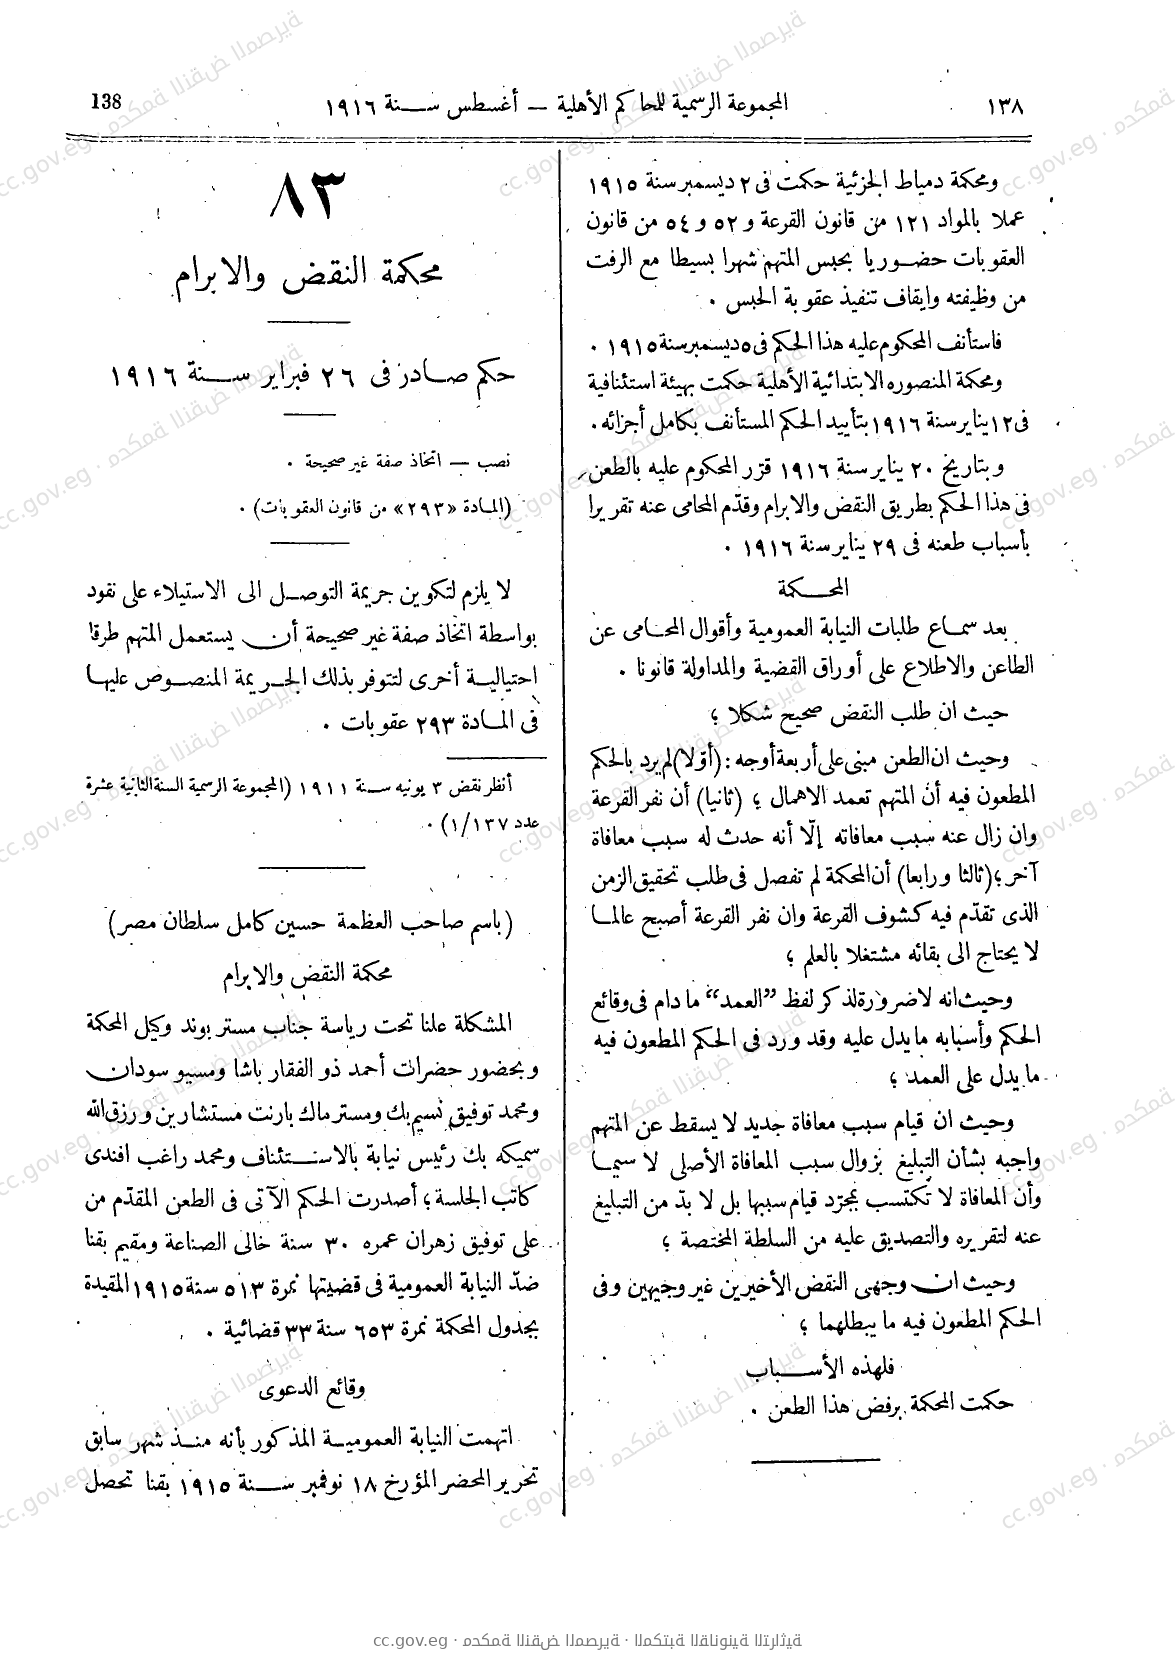 ١٣٨
المجموعة الرسمية للمحاكم الأهلية — أغسطس سنة ١٩١٦
138
ومحكمة دمياط الجزئية حكمت فى ٢ ديسمبر سنة ١٩١٥
عملا بالمواد ١٢١ من قانون القرعة و ٥٢ و ٥٤ من قانون
العقوبات حضوريا بحبس المتهم شهرا بسيطا مع الرفت
من وظيفته وايقاف تنفيذ عقوبة الحبس ٠
فاستأنف المحكوم عليه هذا الحكم فى ٥ ديسمبر سنة ١٩١٥ ٠
ومحكمة المنصوره الابتدائية الأهلية حكمت بهيئة استئنافية
فى ١٢ يناير سنة ١٩١٦ بتأييد الحكم المستأنف بكامل أجزائه ٠
وبتاريخ ٢٠ يناير سنة ١٩١٦ قرّر المحكوم عليه بالطعن
فى هذا الحكم بطريق النقض والابرام وقدّم المحامى عنه تقريرا
بأسباب طعنه فى ٢٩ يناير سنة ١٩١٦ ٠
المحكمة
بعد سماع طلبات النيابة العمومية وأقوال المحامى عن
الطاعن والاطلاع على أوراق القضية والمداولة قانونا ٠
حيث ان طلب النقض صحيح شكلا ؛
وحيث ان الطعن مبنى على أربعة أوجه : (أوّلا) لم يرد بالحكم
المطعون فيه أن المتهم تعمد الاهمال ؛ (ثانيا) أن نفر القرعة
وان زال عنه سبب معافاته إلّا أنه حدث له سبب معافاة
آخر ؛ (ثالثا ورابعا) أن المحكمة لم تفصل فى طلب تحقيق الزمن
الذى تقدّم فيه كشوف القرعة وان نفر القرعة أصبح عالما
لا يحتاج الى بقائه مشتغلا بالعلم ؛
وحيث انه لا ضرورة لذكر لفظ ”العمد“ ما دام فى وقائع
الحكم وأسبابه ما يدل عليه وقد ورد فى الحكم المطعون فيه
ما يدل على العمد ؛
وحيث ان قيام سبب معافاة جديد لا يسقط عن المتهم
واجبه بشأن التبليغ بزوال سبب المعافاة الأصلى لا سيما
وأن المعافاة لا تكتسب بمجرّد قيام سببها بل لا بدّ من التبليغ
عنه لتقريره والتصديق عليه من السلطة المختصة ؛
وحيث ان وجهى النقض الأخيرين غير وجيهين وفى
الحكم المطعون فيه ما يبطلهما ؛
فلهذه الأسباب
حكمت المحكمة برفض هذا الطعن ٠
٨٣
محكمة النقض والابرام
حكم صادر فى ٢٦ فبراير سنة ١٩١٦
نصب — اتخاذ صفة غير صحيحة ٠
(المادة «٢٩٣» من قانون العقوبات) ٠
لا يلزم لتكوين جريمة التوصل الى الاستيلاء على نقود
بواسطة اتخاذ صفة غير صحيحة أن يستعمل المتهم طرقا
احتيالية أخرى لتتوفر بذلك الجريمة المنصوص عليها
فى المادة ٢٩٣ عقوبات ٠
أنظر نقض ٣ يونيه سنة ١٩١١ (المجموعة الرسمية السنة الثانية عشرة
عدد ١/١٣٧) ٠
(باسم صاحب العظمة حسين كامل سلطان مصر)
محكمة النقض والابرام
المشكلة علنا تحت رياسة جناب مستر بوند وكيل المحكمة
وبحضور حضرات أحمد ذو الفقار باشا ومسيو سودان
ومحمد توفيق نسيم بك ومستر ماك بارنت مستشارين ورزق الله
سميكه بك رئيس نيابة بالاستئناف ومحمد راغب افندى
كاتب الجلسة ؛ أصدرت الحكم الآتى فى الطعن المقدّم من
على توفيق زهران عمره ٣٠ سنة خالى الصناعة ومقيم بقنا
ضدّ النيابة العمومية فى قضيتها نمرة ٥١٣ سنة ١٩١٥ المقيدة
بجدول المحكمة نمرة ٦٥٣ سنة ٣٣ قضائية ٠
وقائع الدعوى
اتهمت النيابة العمومية المذكور بأنه منذ شهر سابق
تحرير المحضر المؤرخ ١٨ نوفمبر سنة ١٩١٥ بقنا تحصل
cc.gov.eg · محكمة النقض المصرية · المكتبة القانونية التراثية